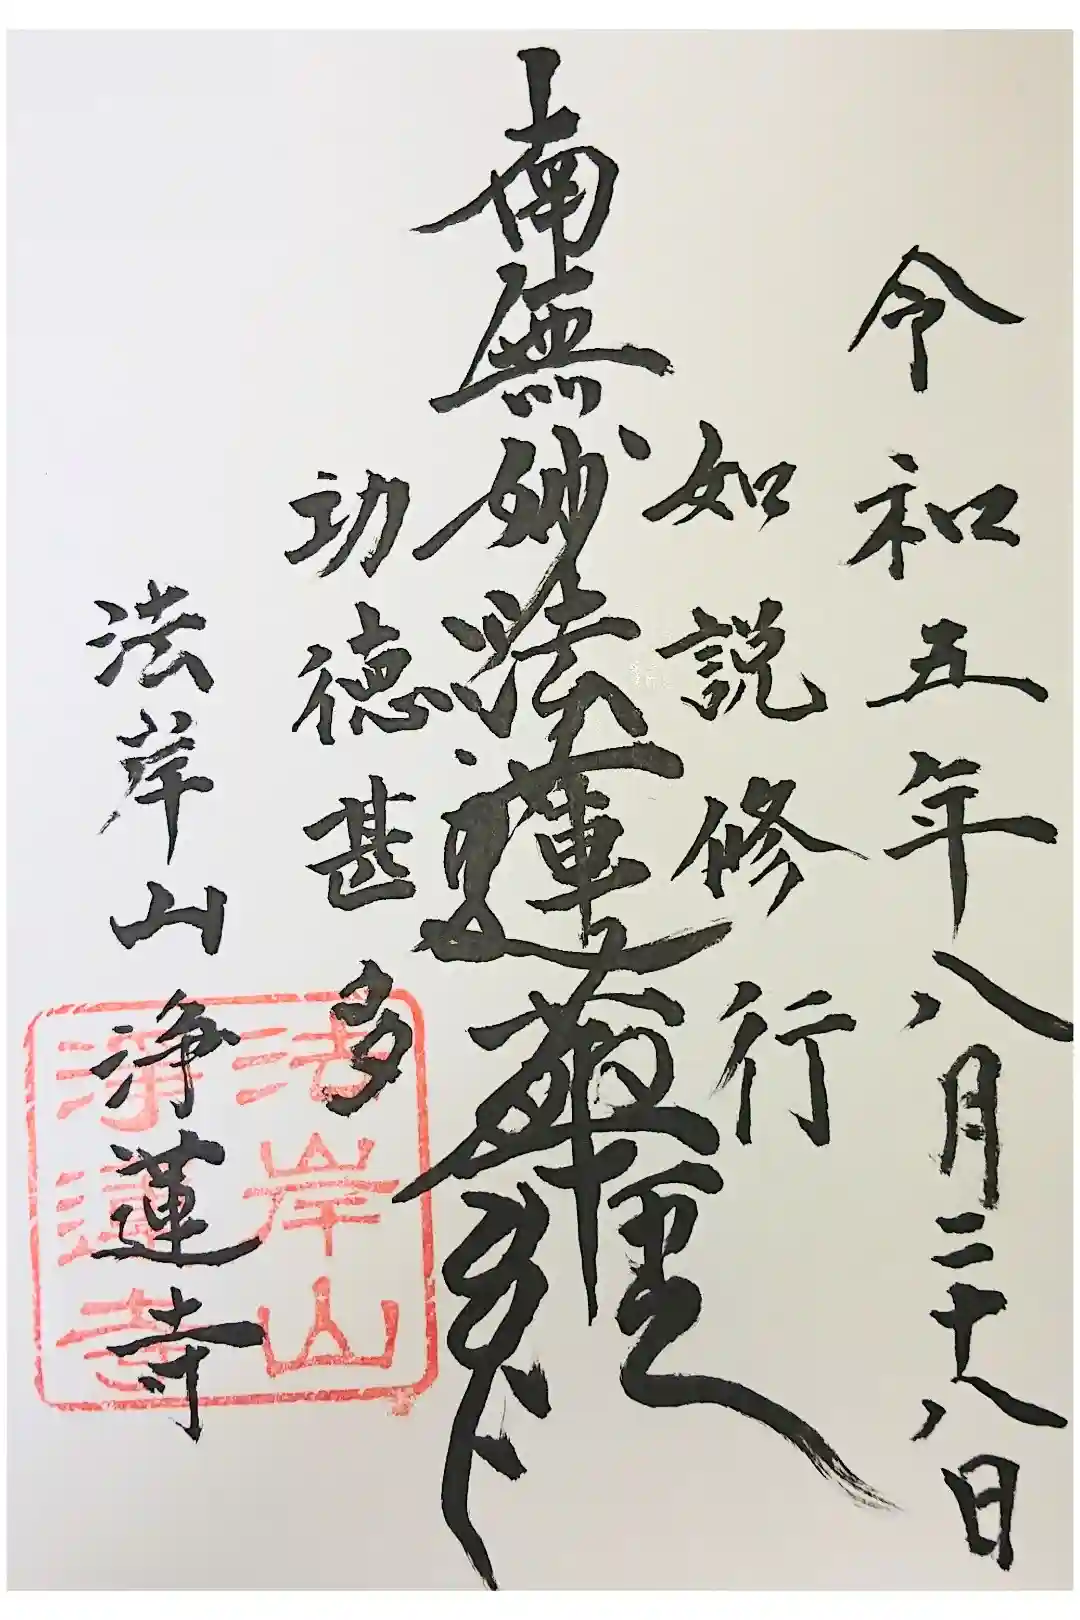 令和五年八月二十八日
如説修行
南無妙法蓮華経
功徳甚多
法岸山浄蓮寺
法岸山
浄蓮寺